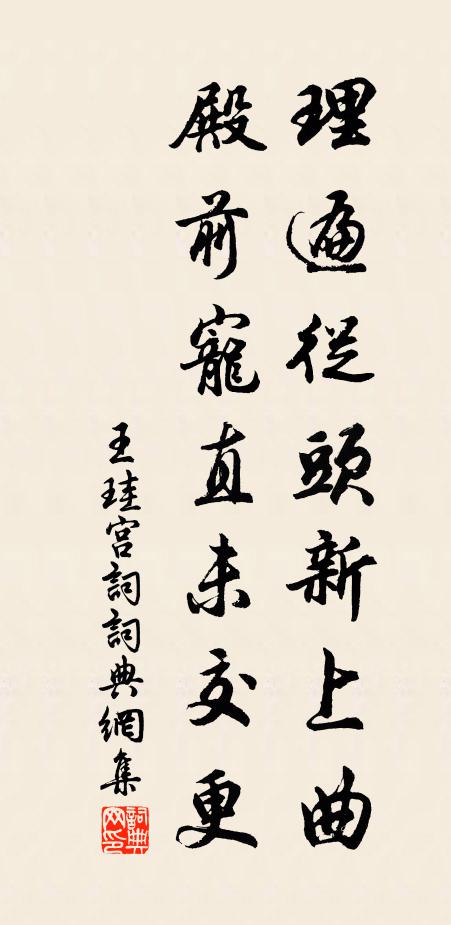 理遍從頭新上曲
殿前寵直未交更
王珪宮詞詞典網集
詞典網印